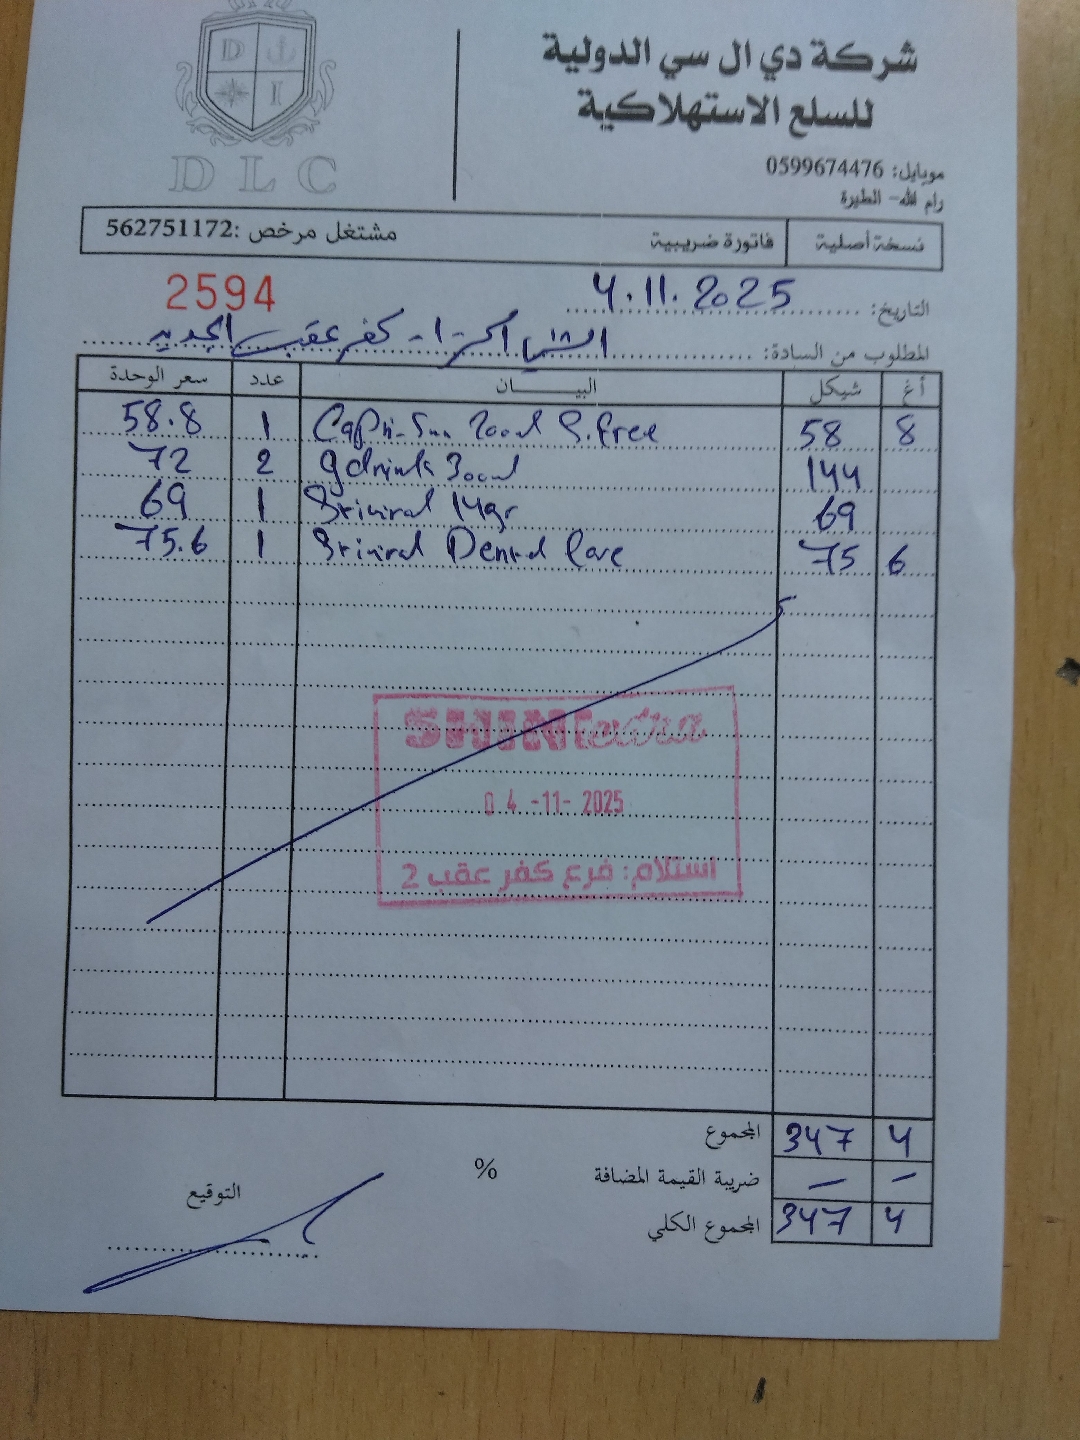 D I
D L C
شركة دي ال سي الدولية
للسلع الاستهلاكية
موبايل: 0599674476
رام الله- الطيرة
نسخة أصلية فاتورة ضريبية مشتغل مرخص :562751172
2594
التاريخ: 4.11.2025
المطلوب من السادة: كفر عقب الجديد
أغ شيكل البيـــــان عدد سعر الوحدة
58.8 1 Capri-Sun 200ml S.free 58 8
72 2 gdrink 300ml 144
69 1 14gr 69
75.6 1 Dental Care 75 6
SHINI extra
04-11-2025
استلام: فرع كفر عقب 2
المجموع 347 4
ضريبة القيمة المضافة % — —
المجموع الكلي 347 4
التوقيع